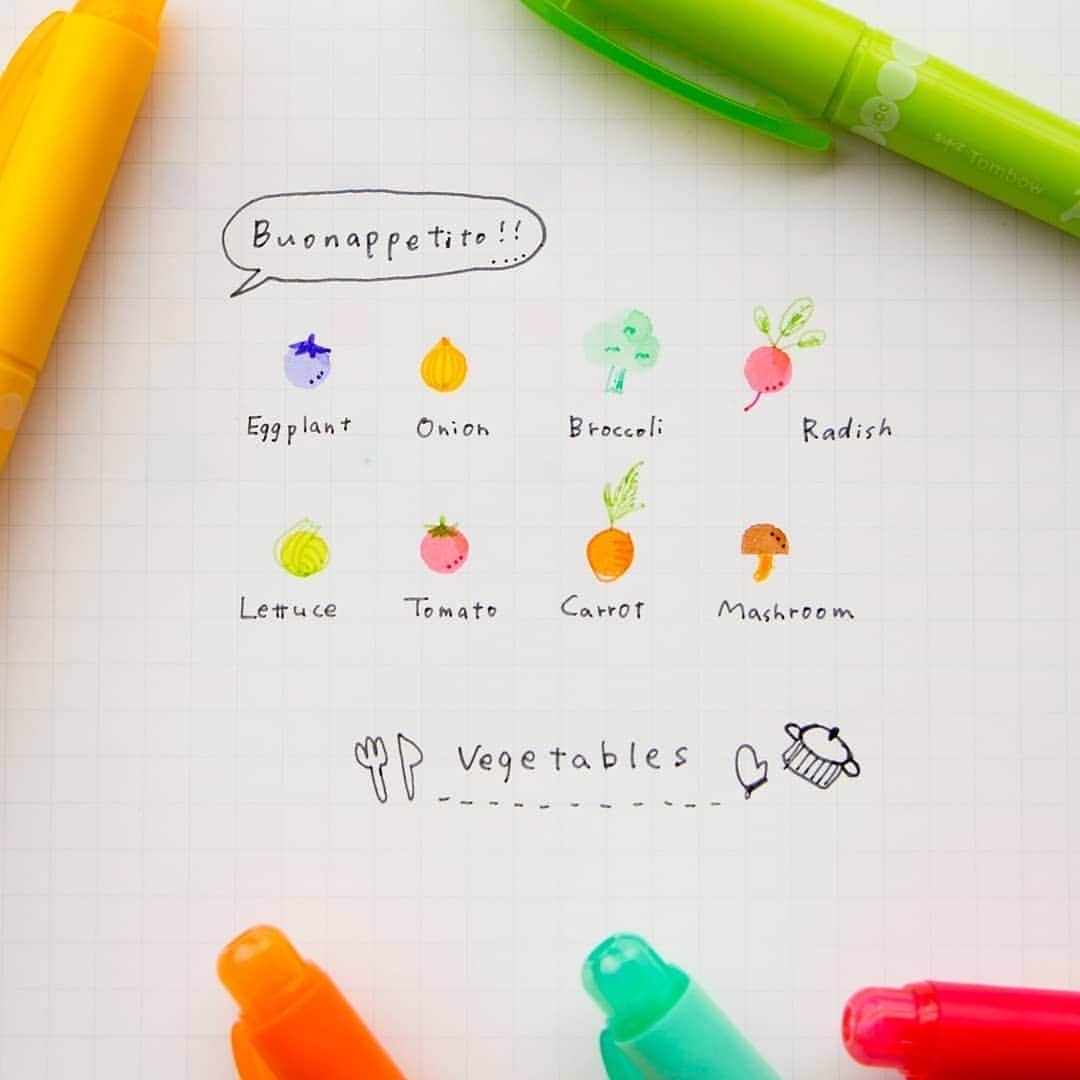 Tombow
Buonappetito!!
Eggplant Onion Broccoli Radish
Lettuce Tomato Carrot Mashroom
Vegetables